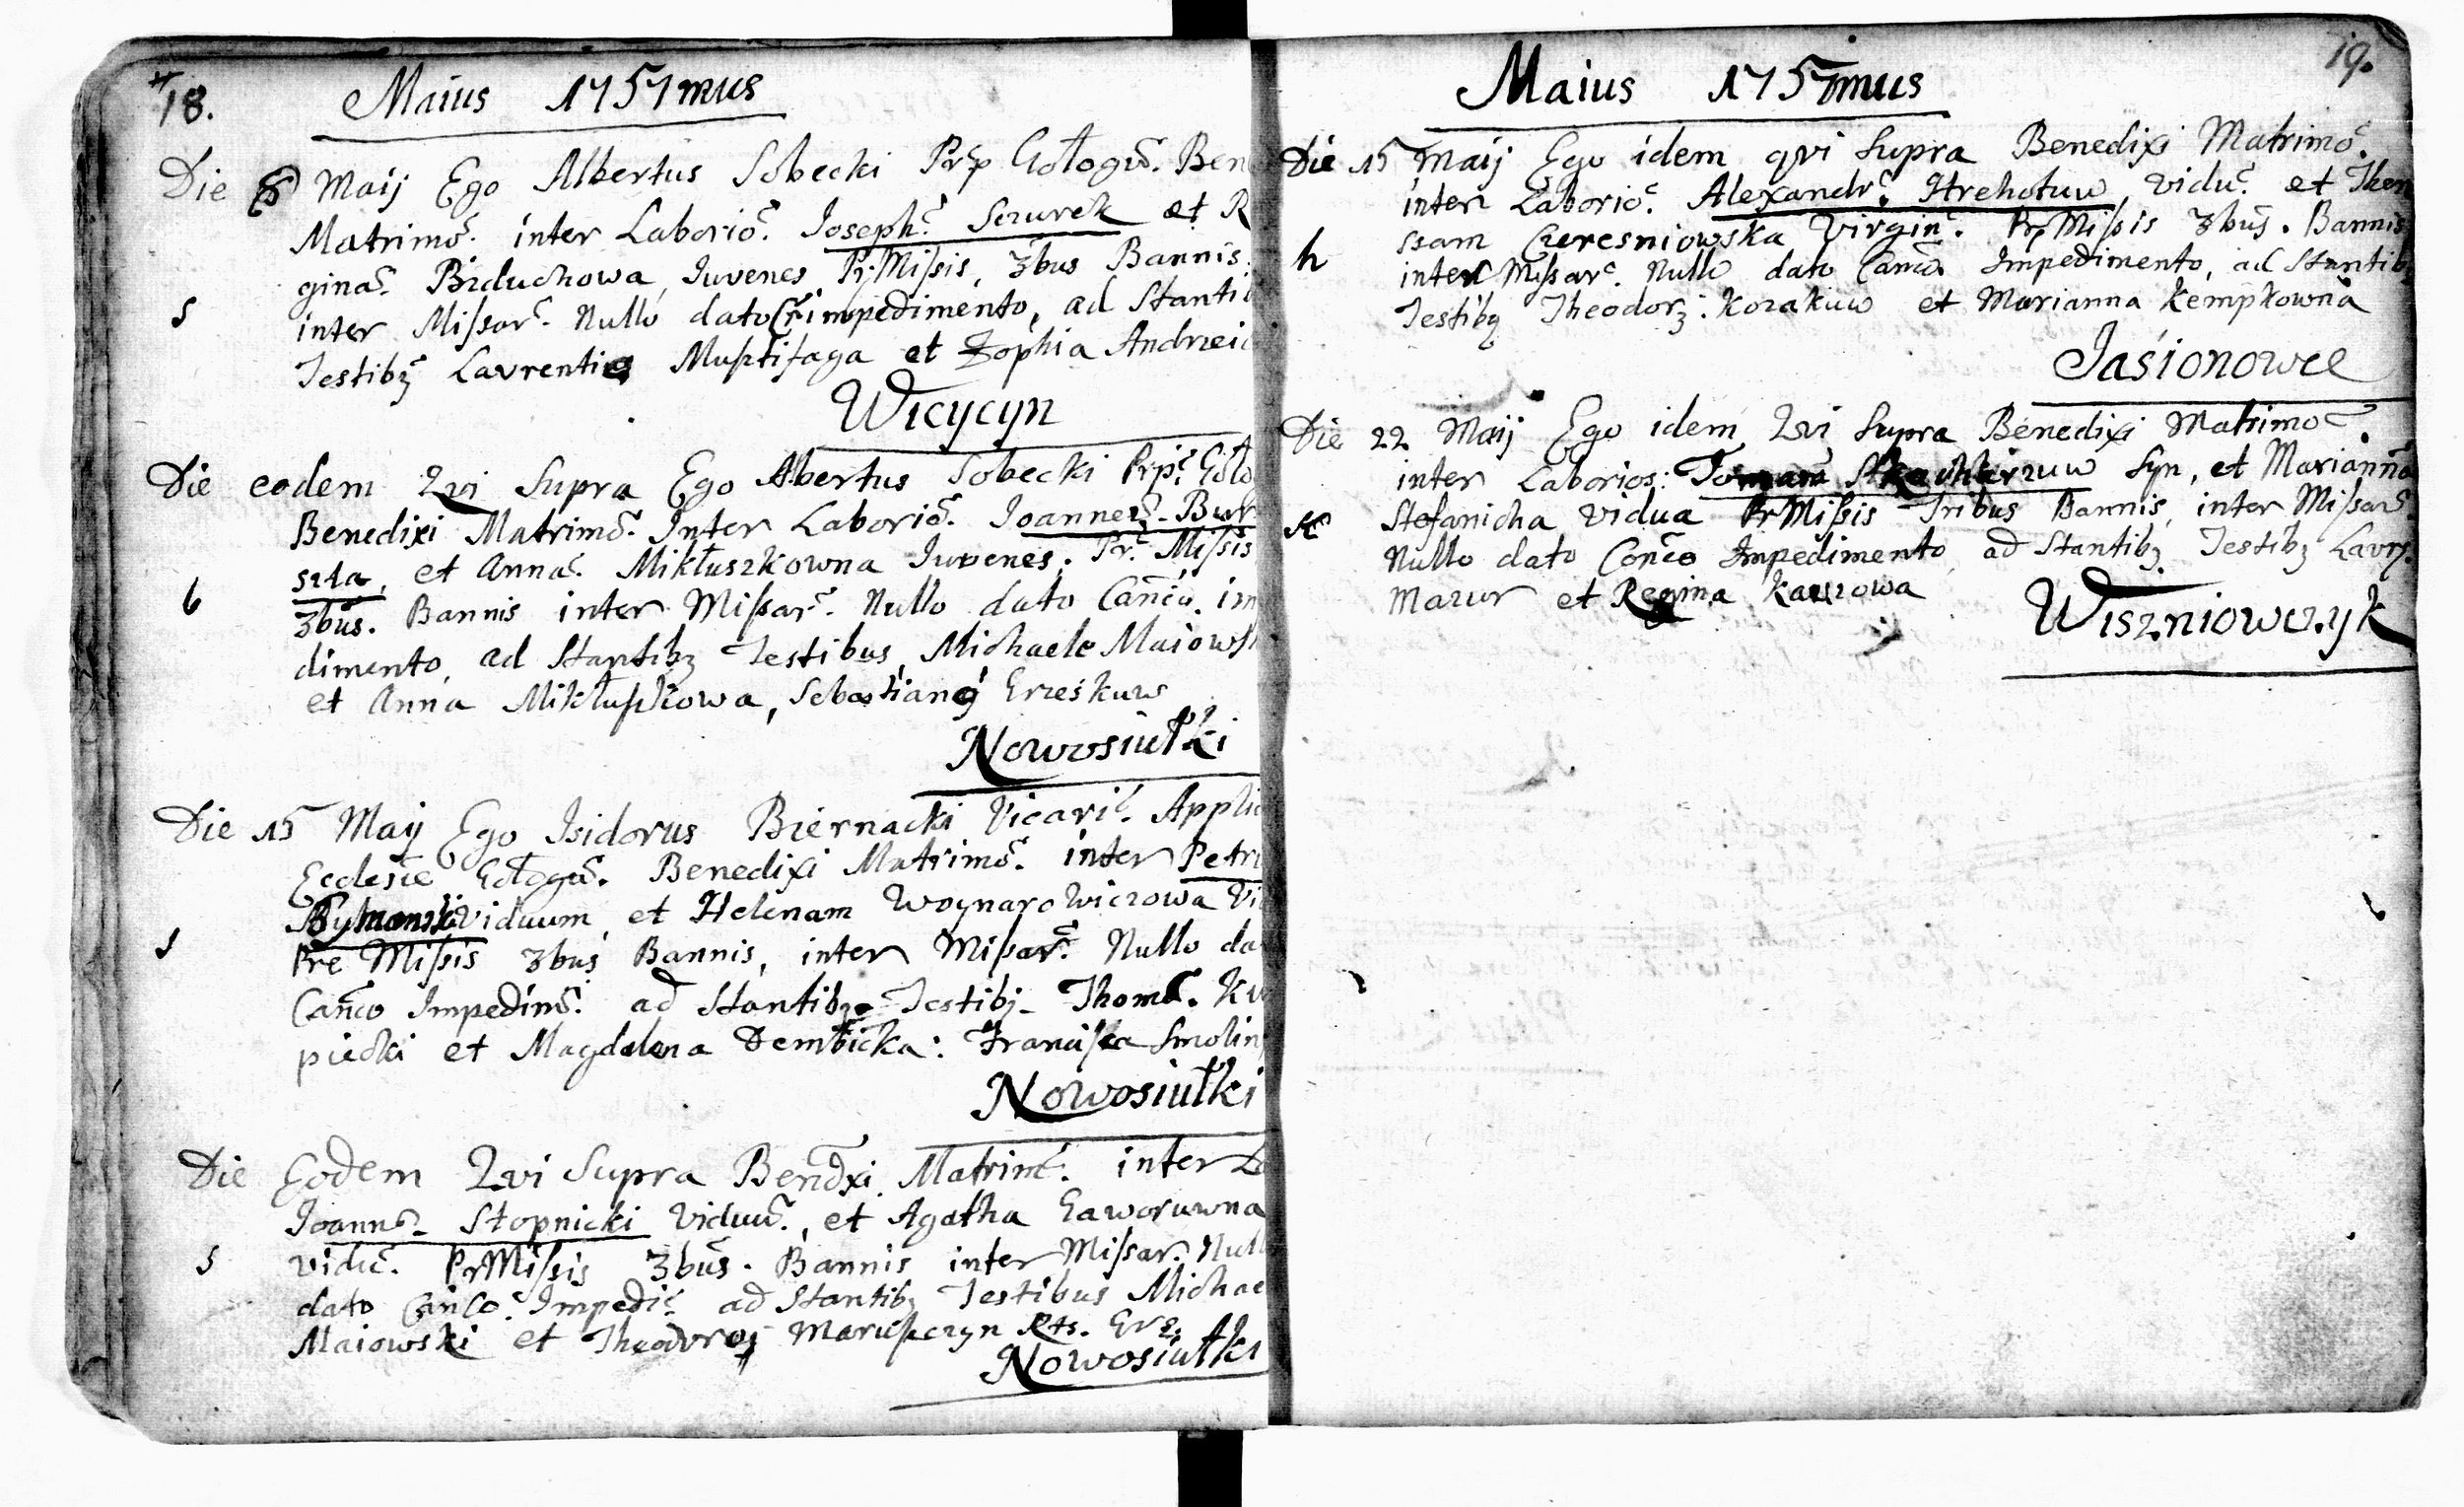 18.
Maius 1757mus
Die 8 Maij Ego Albertus Sobecki Prp Gołogū. Ben
Matrimō. inter Laboriō. Joseph. Szurek et R
gina. Bzduchowa, Iuvenes, Pr:Missis, 3bus Bannis
5
inter Missar. Nullo dato impedimento, ad Stanti
Testibz Laurentig et Zophia Andrzei
Wicycyn
Die eodem Qvi Supra Ego Albertus Sobecki Prp. Goło
Benedixi Matrimō. Inter Laboriō. Joannem. Bur
szta, et Anna. Mikłuszkowna Iuvenes. Pr. Missis
6
3bus. Bannis inter Missar. Nullo dato Cañcō. im
dimento, ad Stantibz Testibus, Michaele Maiows
et Anna Mikłuszkowa, Sebastiang Grzeskuw
Nowosiułki
Die 15 Maij Ego Isidorus Biernacki Vicari. Applic
Ecclesie Gołogū. Benedixi Matrimō. inter Petru
viduum, et Helenam Woynarowiczowa Vi
Pre Missis 3bus Bannis, inter Missar. Nullo da
Cañco Impedimō. ad Stantibz Testibz Thomā. Kr
piecki et Magdalena Dembicka: Franciska Smolin
Nowosiułki
Die Eodem Qvi Supra Bendxi Matrim. inter
Joann. Stopnicki Viduū., et Agatha Gaworuwna
5
vidu. PrMissis 3bus. Bannis inter Missar. Null
dato Canco. Impedi. ad Stantibz Testibus Michae
Maiowski et Theodrog
Nowosiułki
19.
Maius 1757mus
Die 15 Maij Ego idem qvi Supra Benedixi Matrimō.
inter Laboriō. Alexandr. Hrehotuw vidu. et There
ssam Czeresniowska Virgin. PrMissis 3bus. Bannis
h
inter Missar. Nullo dato Canco Impedimento, ad Stantib
Testibz Theodorz: Kozakuw et Marianna Kempkowna
Jaśionowce
Die 22 Maij Ego idem Qvi Supra Benedixi Matrimō
inter Laborios: Syn, et Marianna
Stefanicha Vidua PrMissis Tribus Bannis, inter Missar.
Nullo dato Canco Impedimento, ad Stantibz Testibz Lavr.
Mazur et Regina
Wiszniowczyk